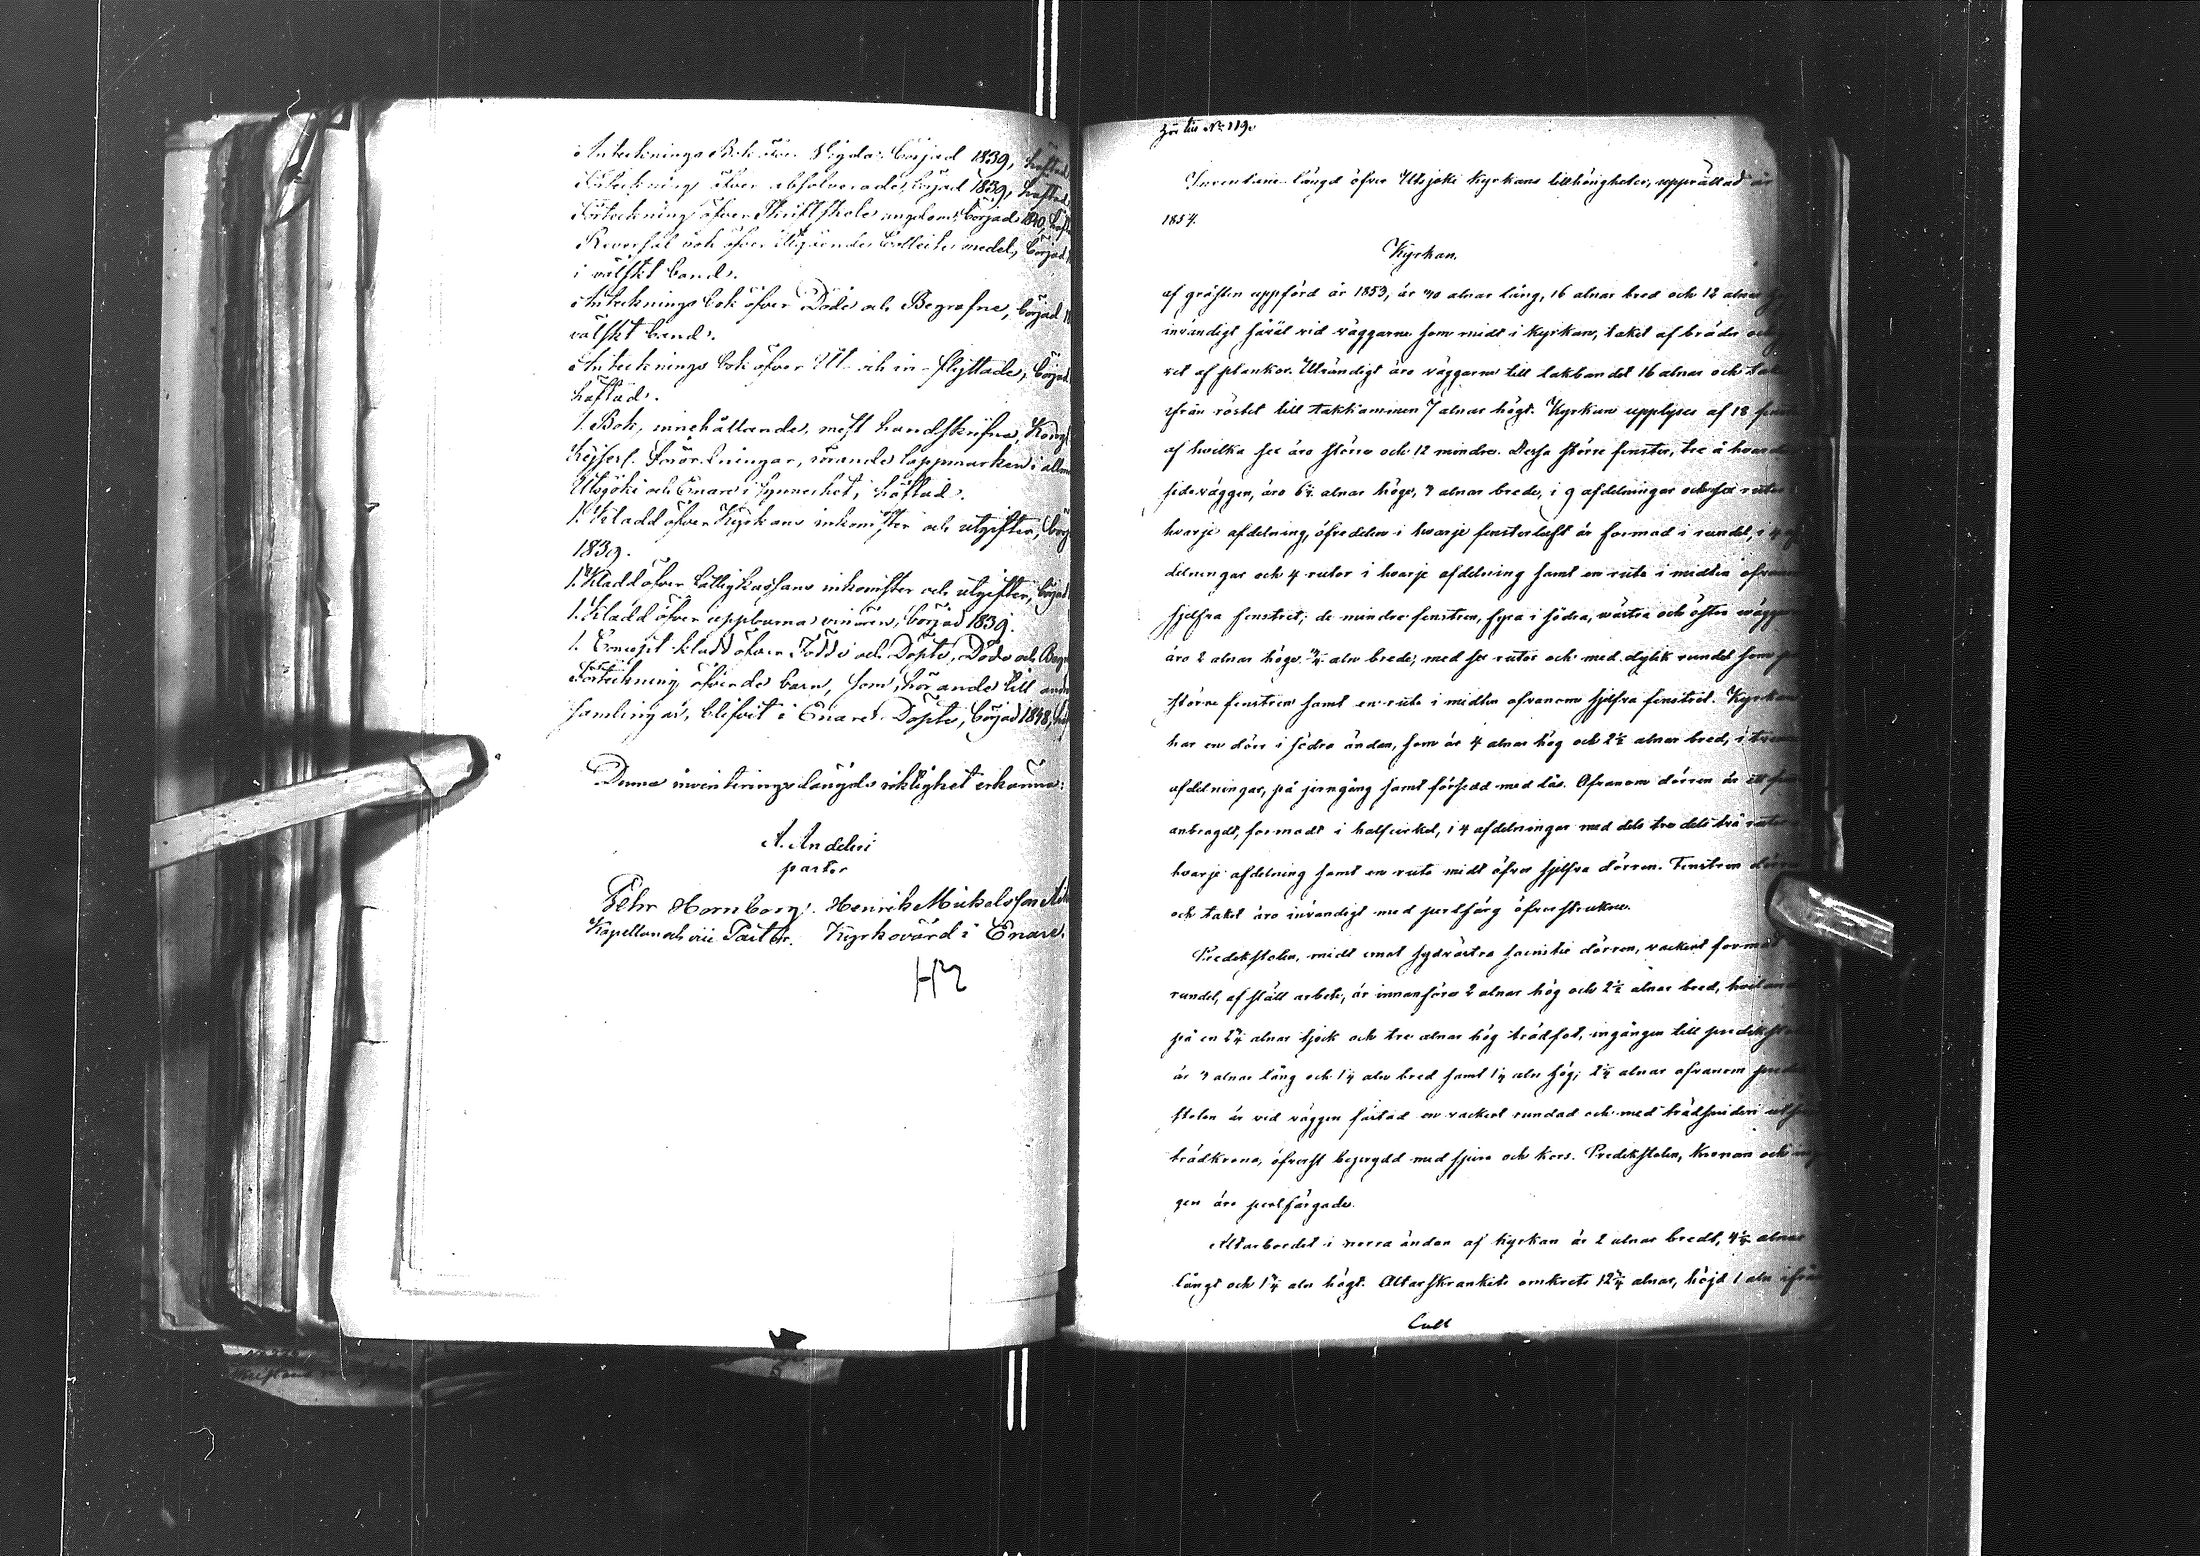 Antecknings Bok öfver Vigda, börjad 1839, häftad
Förteckning öfver absolverade, börjad 1839, häftad.
Förteckning öfver Skriftskole ungdom, börjad 1840, häft
Reversal bok öfver utgående Collecte medel, börjad
i välskt band.
Antecknings bok öfver Döde och Begrafne, börjad
välskt band.
Antecknings bok öfver Ut- och in-flyttade, börjad
häftad.
1. Bok, innehållande, mest handskrifne, Kongl
Kejserl. Förordningar, rörande lappmarken i allm
Utsjoki och Enare i synnerhet, häftad.
1. Kladd öfver Kyrkans inkomster och utgifter, börj
1839.
1. Kladd öfver Fattigkassans inkomster och utgifter, börjad
1. Kladd öfver uppburna vinören, börjad 1839.
1. Concept kladd öfver Födde och Döpte, Döde och Begr
Förteckning öfver de barn, som, hörande till andr
samlingar, blifvit i Enare Döpte, börjad 1848, hä
Denna inventeringslängds riktighet erkänna:
A. Andelin
pastor
Pehr Hornborg. Henrik Mickelsson
Kapellan och vice Pastor. Kyrkovärd i Enare.
HM
119.
Inventarie-längd öfver Utsjoki Kyrkans tillhörigheter, upprättad år
1857.
Kyrkan.
af gråsten uppförd år 1853, är 40 alnar lång, 16 alnar bred och 12 alnar
invändigt såväl vid väggarne som midt i Kyrkan, taket af bräder och
vet af plankor. Utvändigt äro väggarne till takbandet 16 alnar och tak
ifrån röstet till takkammen 7 alnar högt. Kyrkan upplyses af 18 fen
af hvilka sex äro större och 12 mindre. Dessa större fenster, tre å hvardera
sidoväggen, äro 6½ alnar höga, 3 alnar breda, i 9 afdelningar och sex rutor
hvarje afdelning, öfredelen i hvarje fensterluft är formad i rundel, i 4 af
delningar och 4 rutor i hvarje afdelning samt en ruta i midten ofvanom
sjelfva fenstret; de mindre fenstren, fyra i södra, västra och östra vägg
äro 2 alnar höga ¾ aln breda, med sex rutor och med dylik rundel som på
större fenstren samt en ruta i midten ofvanom sjelfva fenstret. Kyrkan
har en dörr i södra ändan, som är 4 alnar hög och 2½ alnar bred, i tvenne
afdelningar, på jerngång samt försedd med lås. Ofvanom dörren är ett fen
anbragdt, formadt i halfcirkel, i 4 afdelningar med dels tre dels två rutor
hvarje afdelning samt en ruta midt öfver sjelfva dörren. Fenstren dörren
och taket äro invändigt med perlfärg öfverstrukne.
Predikstolen, midt emot sydvästra dörren, vackert formad
rundel, af slätt arbete, är innanföre 2 alnar hög och 2½ alnar bred, hvilande
på en alnar tjock och tre alnar hög trädfot, ingången till predikstolen
är 3 alnar lång och 1¼ aln bred samt 1¼ aln hög; alnar ofvanom predik
stolen är vid väggen fästad en vackert rundad och med trädsnideri
trädkrona, öfverst beprydd med spira och kors. Predikstolen, kronan och ing
gen äro perlfärgade.
Altarbordet i norra ändan af Kyrkan är 2 alnar bredt, 4½ alnar
långt och 1¾ aln högt. Altarskrankets omkrets 12¾ alnar, höjd 1 aln ifrån